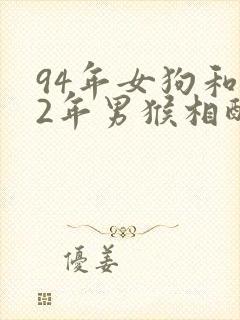 94年女狗和
2年男猴相配
優姜